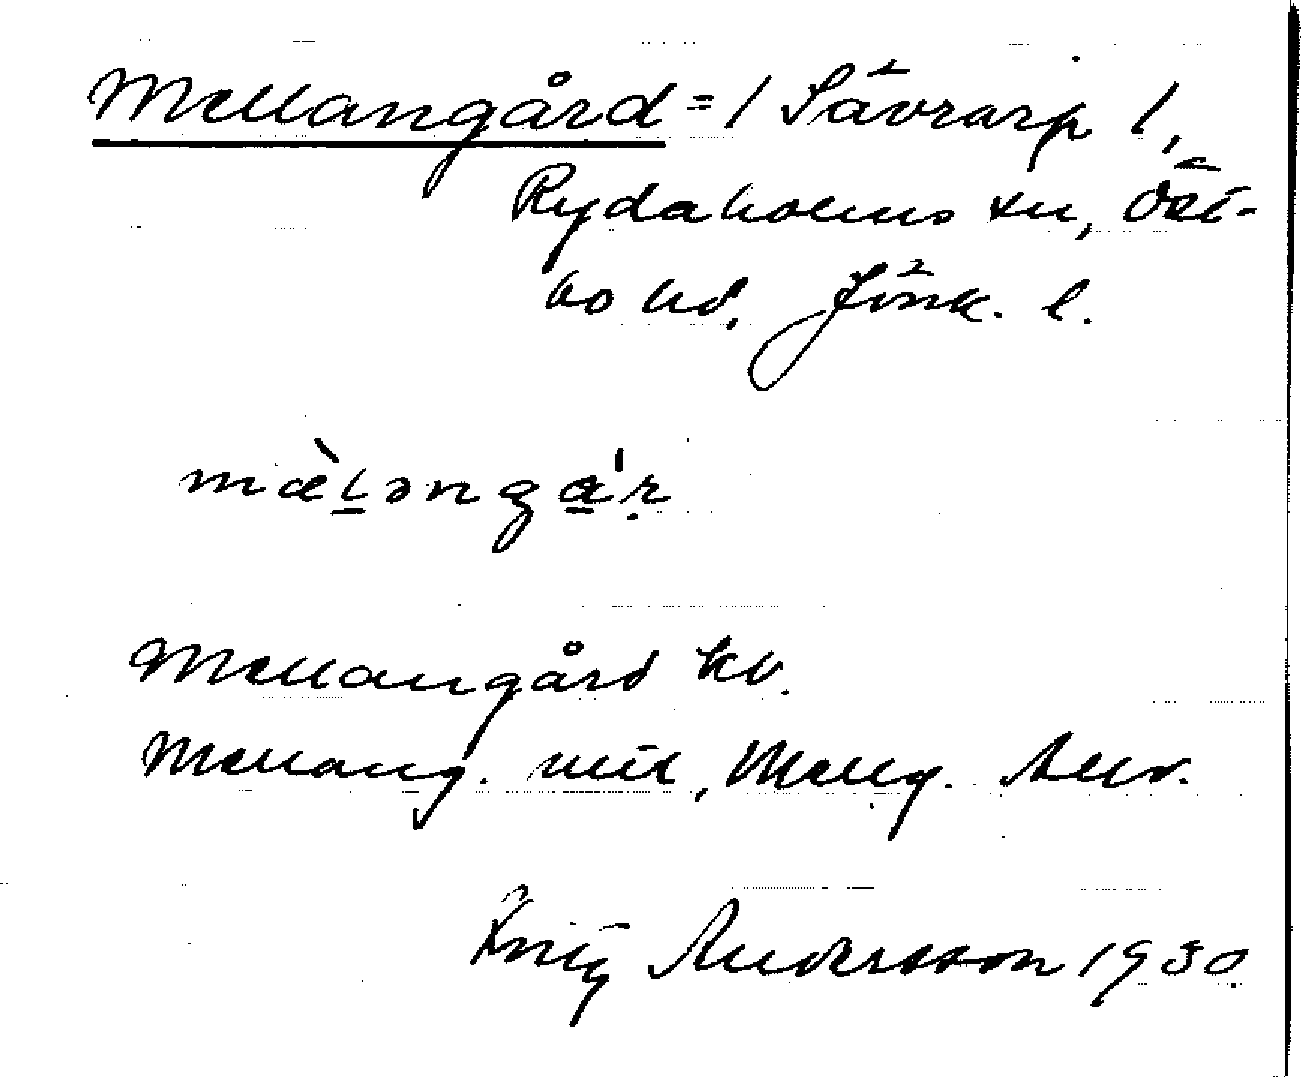 Mellangård = 1 Sävrarp 1,
Rydaholms sn, Öst-
bo hd, Jönk. l.
mæ̀l̠əngá̠ṛ
Mellangård kv.
Mellang. mtl, Mellg.
Fritz Andersson 1930